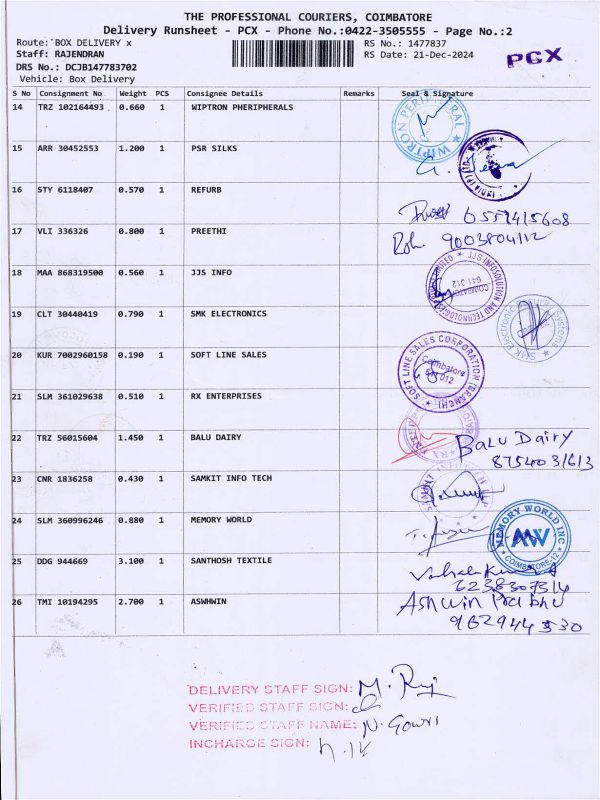 THE PROFESSIONAL COURIERS, COIMBATORE
Delivery Runsheet - PCX - Phone No.:0422-3505555 - Page No.:2
Route: BOX DELIVERY x
RS No.: 1477837
Staff: RAJENDRAN
RS Date: 21-Dec-2024
PCX
DRS No.: DCJB147783702
Vehicle: Box Delivery
S No Consignment No Weight PCS Consignee Details Remarks Seal & Signature
14 TRZ 102164493 0.660 1 WIPTRON PHERIPHERALS
WIPTRON PERIPHERAL
15 ARR 30452553 1.200 1 PSR SILKS
INDIA (P) LTD
16 STY 6118407 0.570 1 REFURB
17 VLI 336326 0.800 1 PREETHI
18 MAA 868319500 0.560 1 JJS INFO
JJS INFOSOLUTION AND TECHNOLOGIES
COIMBATORE
641 012
19 CLT 30440419 0.790 1 SMK ELECTRONICS
SMK Electronic Systems
20 KUR 7002960158 0.190 1 SOFT LINE SALES
SOFT LINE SALES CORPORATION (BRANCH)
Coimbatore
641 012
21 SLM 361029638 0.510 1 RX ENTERPRISES
22 TRZ 56015604 1.450 1 BALU DAIRY
BALU DAIRY
23 CNR 1836258 0.430 1 SAMKIT INFO TECH
SAMKIT INFO TECH
24 SLM 360996246 0.880 1 MEMORY WORLD
MEMORY WORLD INC
MW
COIMBATORE-12
25 DDG 944669 3.100 1 SANTHOSH TEXTILE
26 TMI 10194295 2.700 1 ASWHWIN
Ashwin Prabhu
DELIVERY STAFF SIGN: M. Raj
VERIFIED STAFF SIGN:
VERIFIED STAFF NAME: N. Gowri
INCHARGE SIGN: